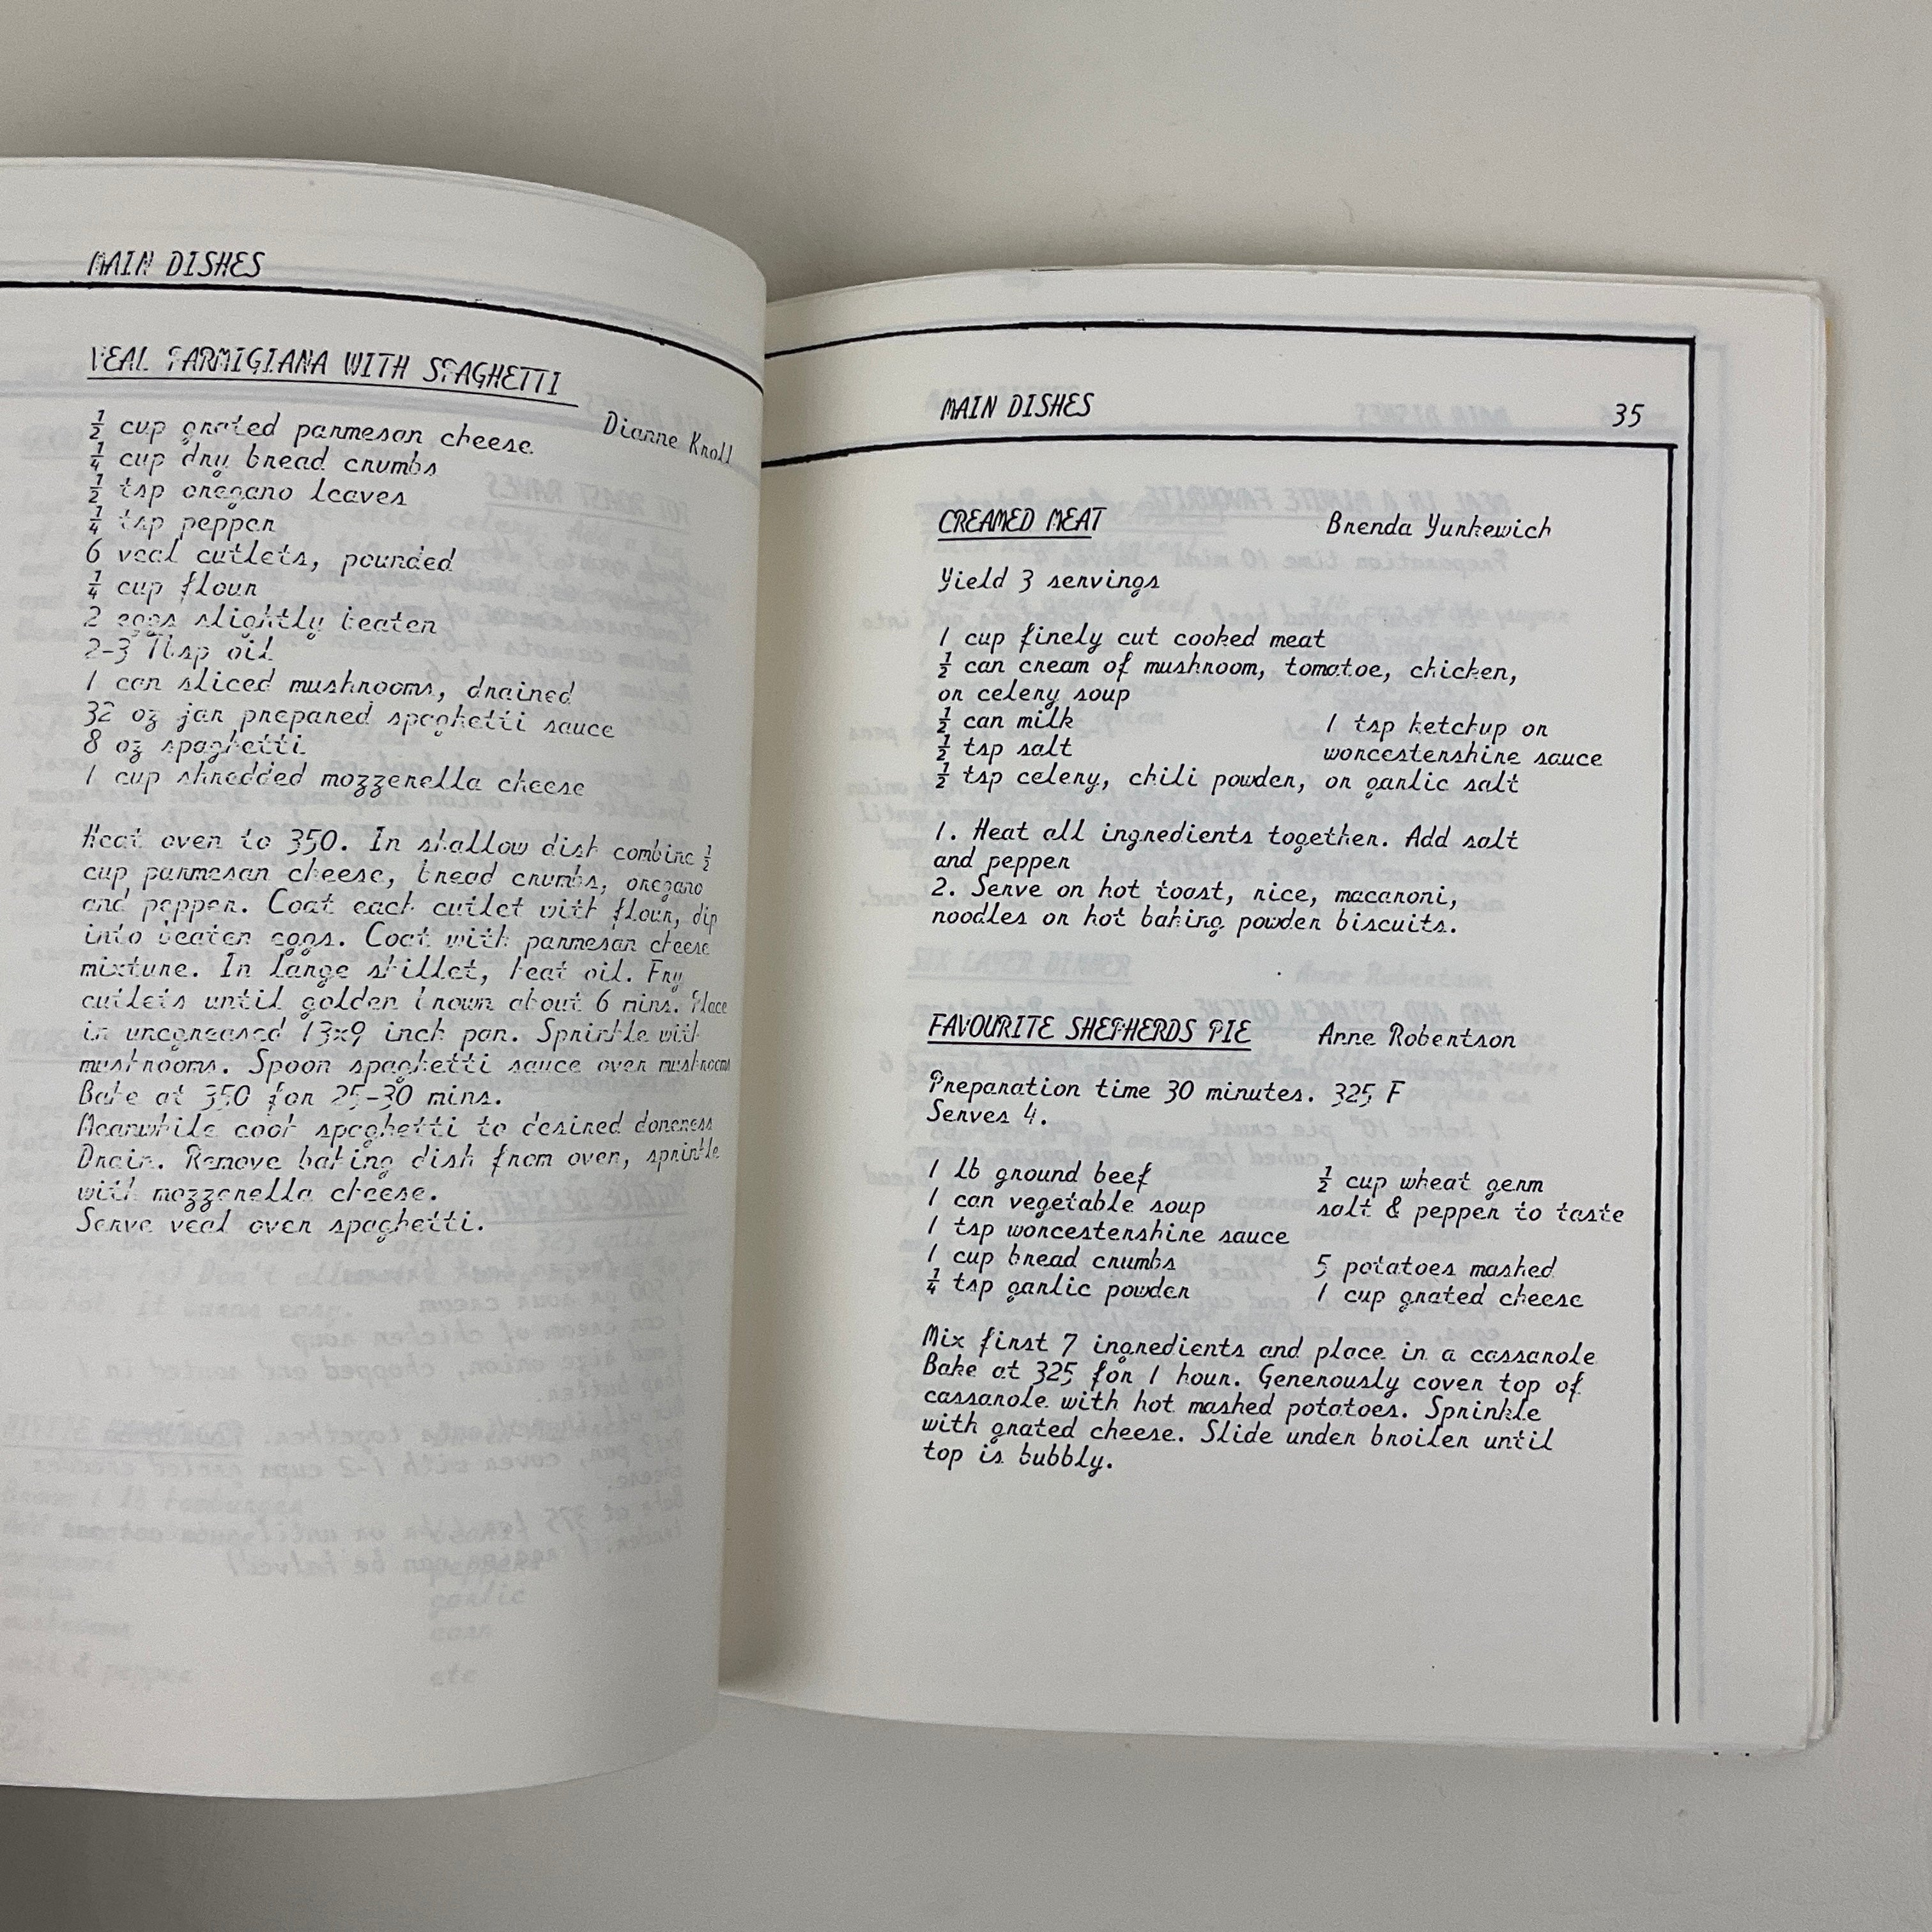 MAIN DISHES
VEAL PARMIGIANA WITH SPAGHETTI
Dianne Knoll
½ cup grated parmesan cheese
¼ cup dry bread crumbs
½ tsp oregano leaves
¼ tsp pepper
6 veal cutlets, pounded
¼ cup flour
2 eggs slightly beaten
2-3 Tbsp oil
1 can sliced mushrooms, drained
32 oz jar prepared spaghetti sauce
8 oz spaghetti
1 cup shredded mozzerella cheese
Heat oven to 350. In shallow dish combine ½
cup parmesan cheese, bread crumbs, oregano
and pepper. Coat each cutlet with flour, dip
into beaten eggs. Coat with parmesan cheese
mixture. In large skillet, heat oil. Fry
cutlets until golden brown about 6 mins. Place
in ungreased 13x9 inch pan. Sprinkle with
mushrooms. Spoon spaghetti sauce over mushrooms
Bake at 350 for 25-30 mins.
Meanwhile cook spaghetti to desired doneness
Drain. Remove baking dish from oven, sprinkle
with mozzerella cheese.
Serve veal over spaghetti.
MAIN DISHES 35
CREAMED MEAT Brenda Yurkewich
Yield 3 servings
1 cup finely cut cooked meat
½ can cream of mushroom, tomatoe, chicken,
or celery soup
½ can milk 1 tsp ketchup or
½ tsp salt worcestershire sauce
½ tsp celery, chili powder, or garlic salt
1. Heat all ingredients together. Add salt
and pepper
2. Serve on hot toast, rice, macaroni,
noodles or hot baking powder biscuits.
FAVOURITE SHEPHERDS PIE Anne Robertson
Preparation time 30 minutes. 325 F
Serves 4.
1 lb ground beef ½ cup wheat germ
1 can vegetable soup salt & pepper to taste
1 tsp worcestershire sauce
1 cup bread crumbs 5 potatoes mashed
¼ tsp garlic powder 1 cup grated cheese
Mix first 7 ingredients and place in a cassarole
Bake at 325 for 1 hour. Generously cover top of
cassarole with hot mashed potatoes. Sprinkle
with grated cheese. Slide under broiler until
top is bubbly.